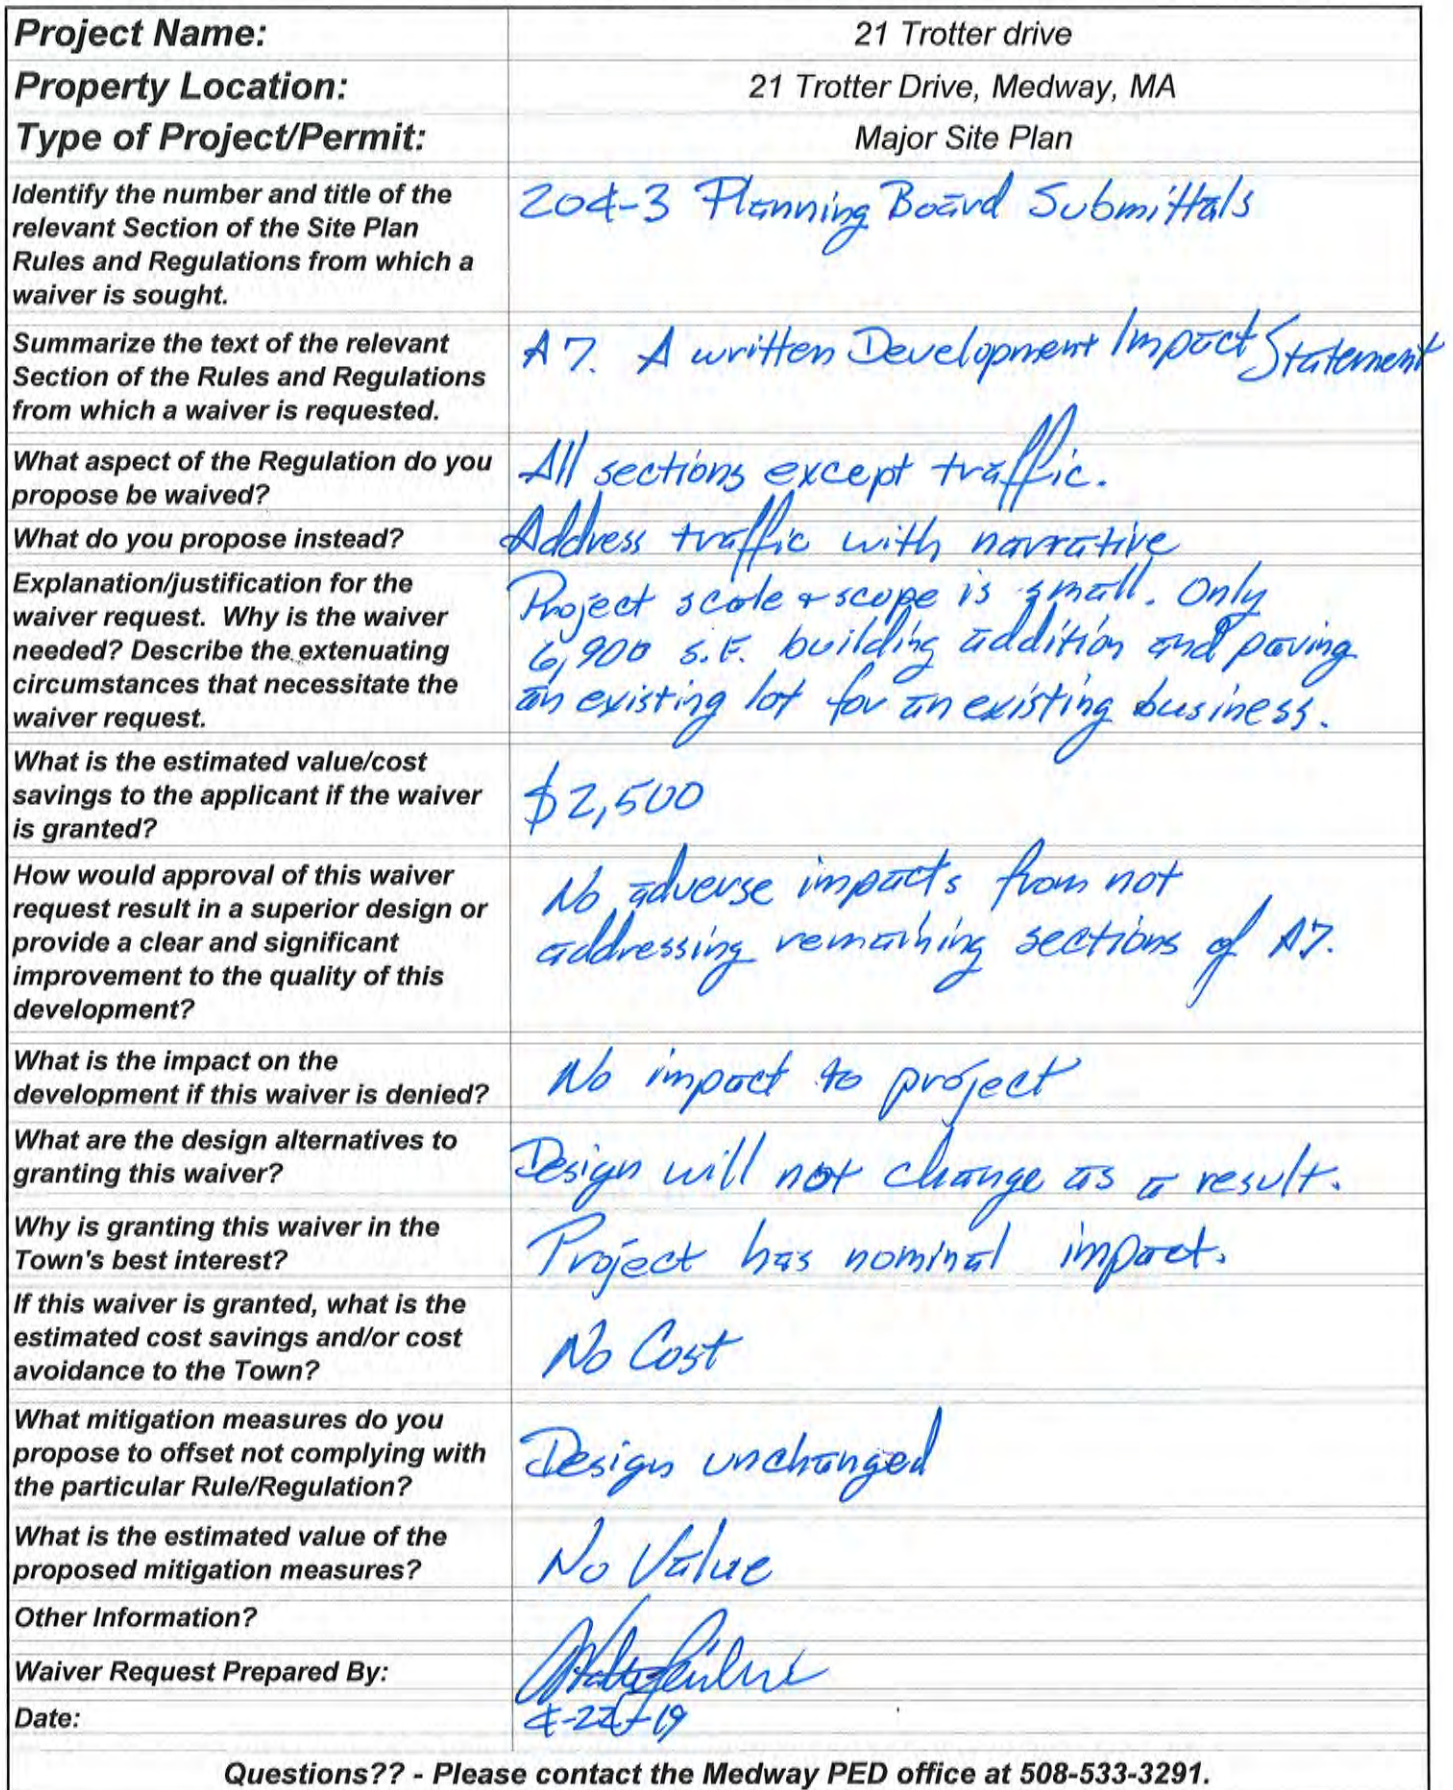 Project Name: 21 Trotter drive
Property Location: 21 Trotter Drive, Medway, MA
Type of Project/Permit: Major Site Plan
Identify the number and title of the
relevant Section of the Site Plan
Rules and Regulations from which a
waiver is sought.
204-3 Planning Board Submittals
Summarize the text of the relevant
Section of the Rules and Regulations
from which a waiver is requested.
A7. A written Development Impact Statement
What aspect of the Regulation do you
propose be waived?
All sections except traffic.
What do you propose instead?
Address traffic with narrative
Explanation/justification for the
waiver request. Why is the waiver
needed? Describe the extenuating
circumstances that necessitate the
waiver request.
Project scale & scope is small. Only
6,900 s.F. building addition and paving
an existing lot for an existing business.
What is the estimated value/cost
savings to the applicant if the waiver
is granted?
$2,500
How would approval of this waiver
request result in a superior design or
provide a clear and significant
improvement to the quality of this
development?
No adverse impacts from not
addressing remaining sections of A7.
What is the impact on the
development if this waiver is denied?
No impact to project
What are the design alternatives to
granting this waiver?
Design will not change as a result.
Why is granting this waiver in the
Town's best interest?
Project has nominal impact.
If this waiver is granted, what is the
estimated cost savings and/or cost
avoidance to the Town?
No Cost
What mitigation measures do you
propose to offset not complying with
the particular Rule/Regulation?
Design unchanged
What is the estimated value of the
proposed mitigation measures?
No Value
Other Information?
Waiver Request Prepared By:
Date:
Questions?? - Please contact the Medway PED office at 508-533-3291.